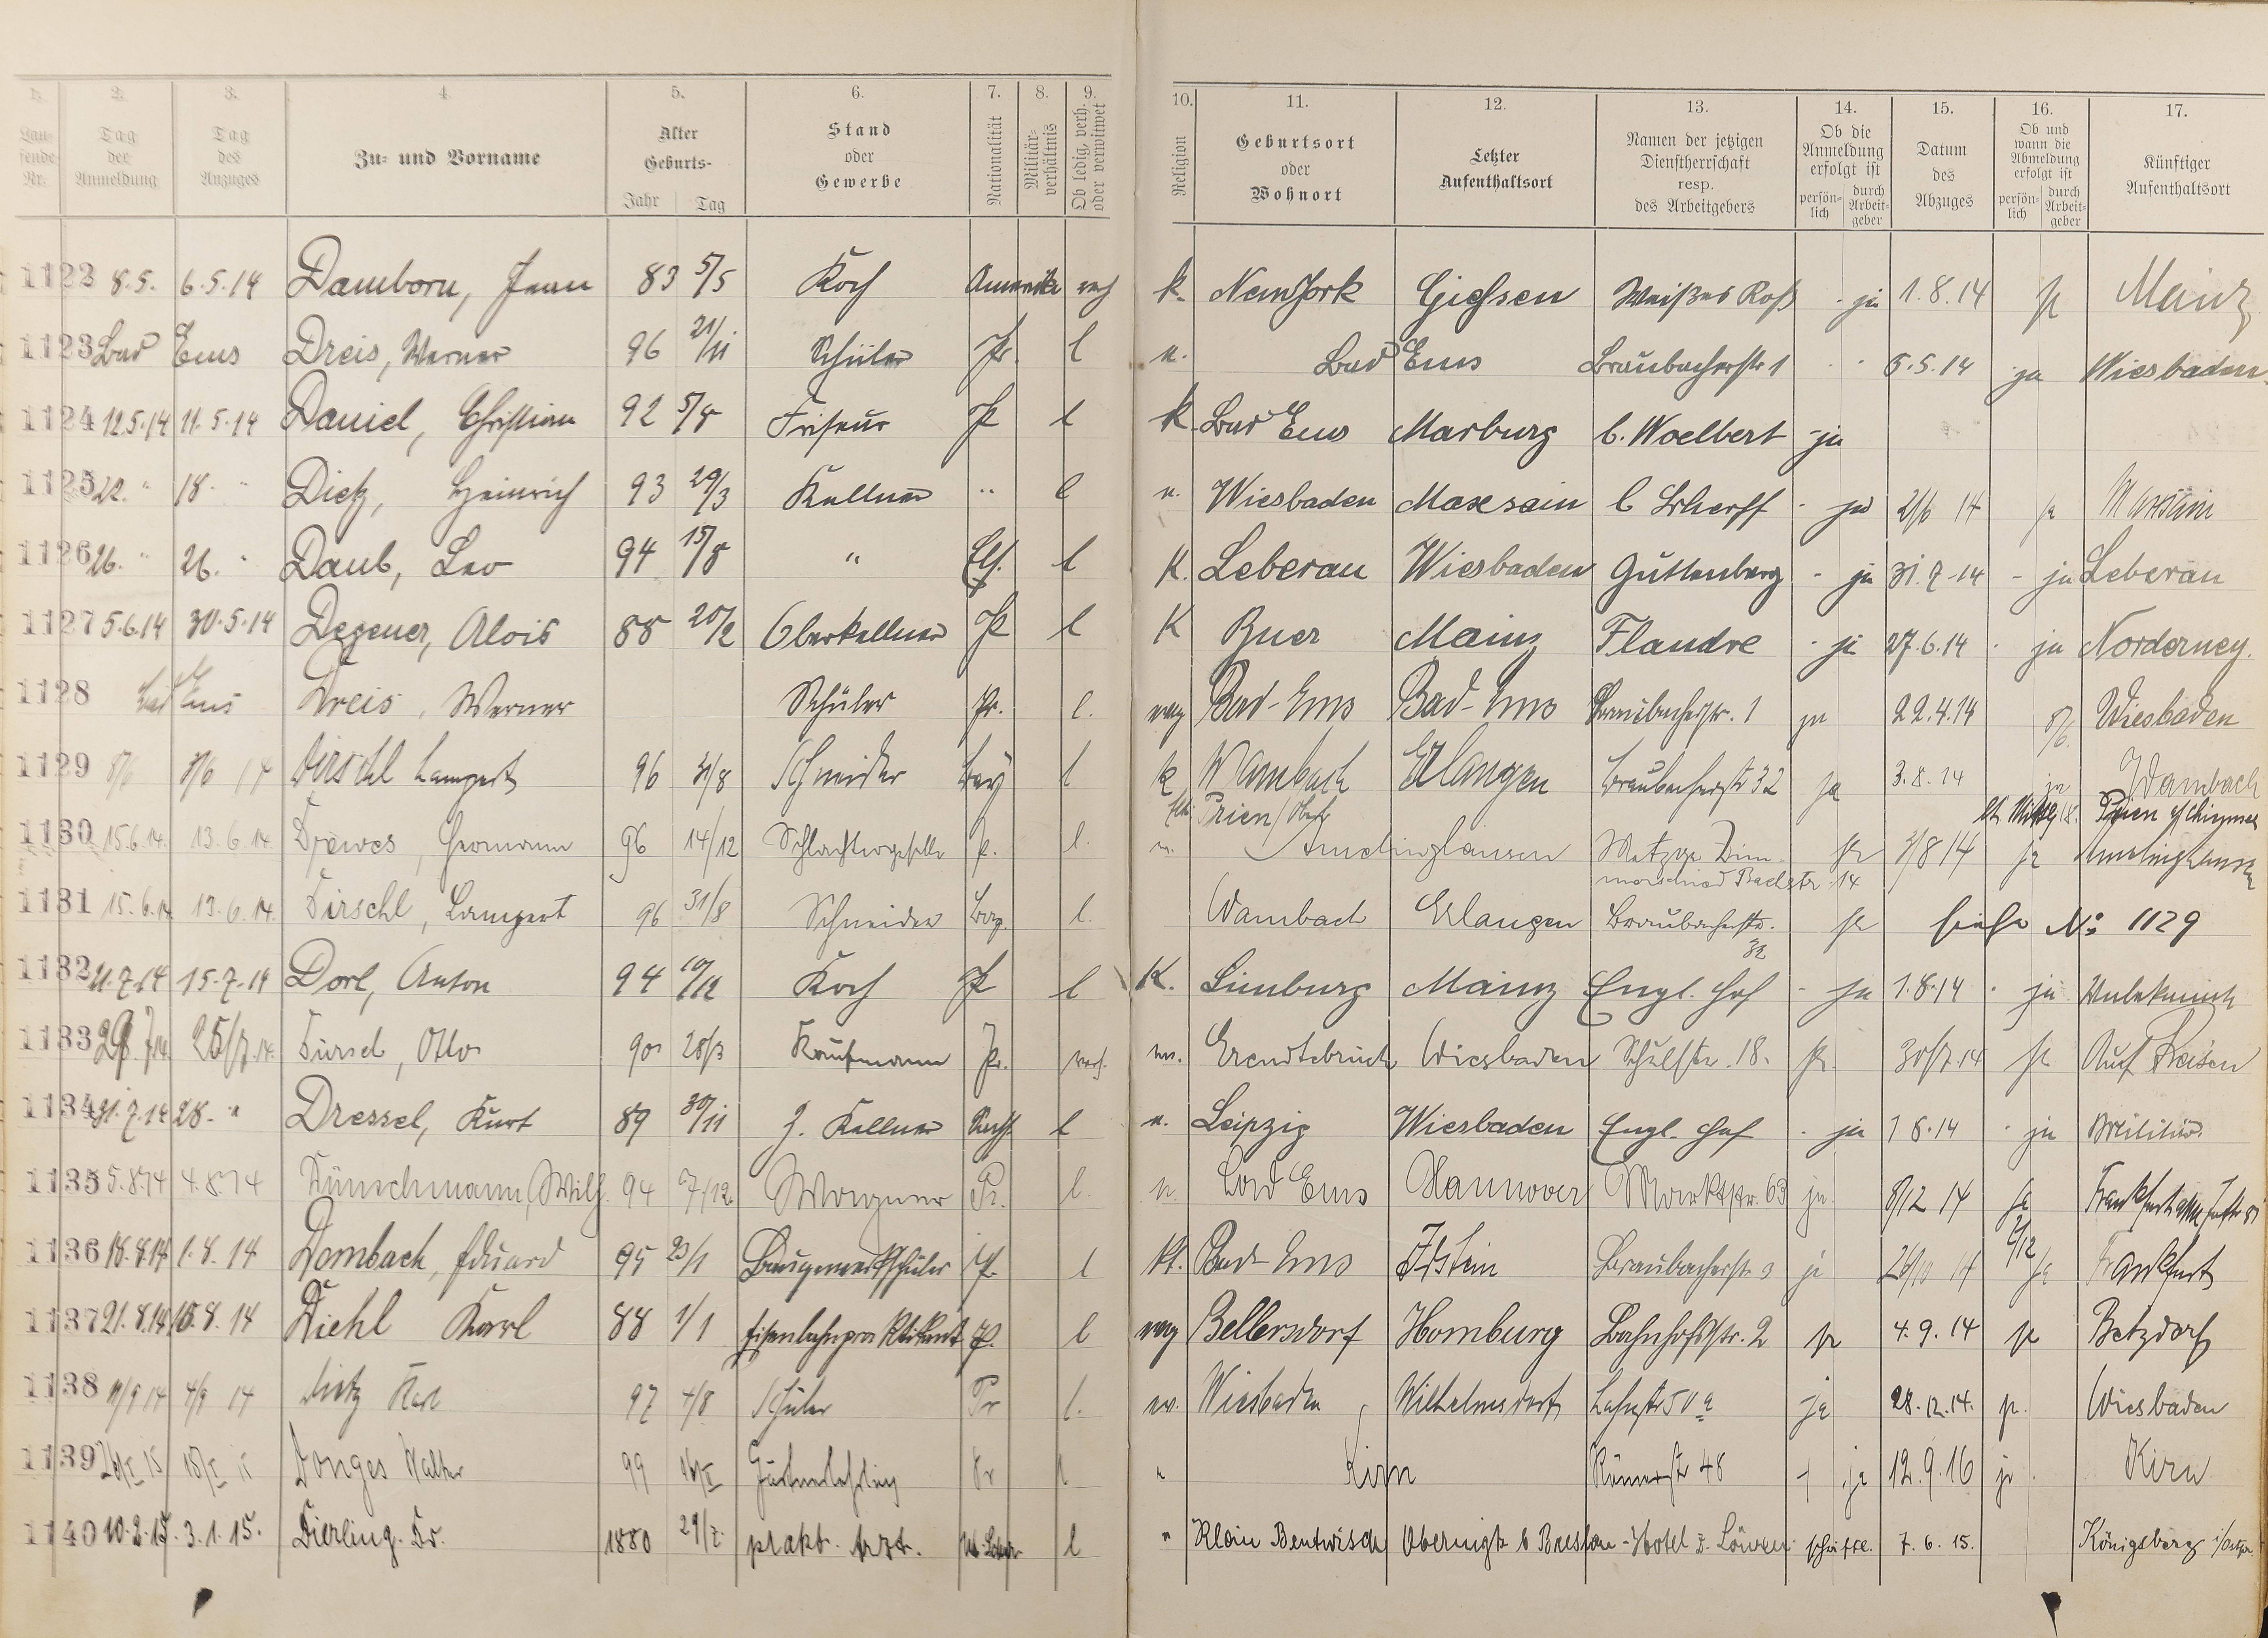 1. 2. 3. 4. 5. 6. 7. 8. 9. 10. 11. 12. 13. 14. 15. 16. 17.
Laufende Nr. Tag der Anmeldung Tag des Anzuges Zu- und Vorname Alter Geburts- Jahr Tag Stand oder Gewerbe Nationalität Militärverhältnis Ob ledig, verh. oder verwitwet Religion Geburtsort oder Wohnort Letzter Aufenthaltsort Namen der jetzigen Dienstherrschaft resp. des Arbeitgebers Ob die Anmeldung erfolgt ist persönlich durch Arbeitgeber Datum des Abzuges Ob und wann die Abmeldung erfolgt ist persönlich durch Arbeitgeber Künftiger Aufenthaltsort
1122 8.5. 6.5.14 Damborn, Jean 83 5/5 Koch Amerika verh k. NewYork Giehsen Weißes Roß - ja 1.8.14 ja Mainz
1123 Bad Ems Dreis, Werner 96 21/11 Schüler Pr. l e. Bad Ems Braubacherstr 1 5.5.14 ja Wiesbaden
1124 12.5.14 11.5.14 Daniel, Christian 92 5/8 Friseur Pr l k. Bad Ems Marburg b. Woelbert - ja
1125 22. " 18. " Dietz, Heinrich 93 29/3 Kellner " l e. Wiesbaden Maxsain b Scherff - ja 21/6 14 ja Maxsain
1126 26. " 26. " Daub, Leo 94 15/8 " Els. l K. Leberau Wiesbaden Guttenberg - ja 31.7.14 - ja Leberau
1127 5.6.14 30.5.14 Degener, Alois 88 20/2 Oberkellner Pr l K Buer Mainz Flandre - ja 27.6.14 - ja Norderney.
1128 Bad Ems Dreis, Werner Schüler Pr. l. evg Bad-Ems Bad-Ems Braubacherstr. 1 ja 22.4.14 8/6 Wiesbaden
1129 8/6 8/6 14 Dirschl Lampert 96 31/8 Schneider Bay l k Wambach Erlangen Braubacherstr 32 ja 3.8.14 ja Wambach
Prien / Prien
1130 15.6.14. 13.6.14. Drewes, Hermann 96 14/12 Schlachtergeselle P. l. e. Amelinghausen Metzger Dim-
morschied Bachstr 14 ja 3/8 14 ja Amelinghausen
1131 15.6.14 13.6.14. Dirschl, Lampert 96 31/8 Schneider Bay. l. Wambach Erlangen Braubacherstr. 32 ja siehe No 1129
1132 21.7.14 15.7.14 Dorl, Anton 94 10/12 Koch Pr l K. Limburg Mainz Engl. Hof - ja 1.8.14 - ja Unbekannt
1133 29.7.14. 25/7.14. Dürsel, Otto 90 28/3 Kaufmann Pr. verh. ev. Erendtebrück Wiesbaden Schulstr. 18. ja. 30/7.14 ja Auf Reisen
1134 31.7.14 28. " Dressel, Kurt 89 30/11 Z. Kellner Sachs. l e. Leipzig Wiesbaden Engl. Hof - ja 1 8.14 - ja Militär.
1135 5.8.14 4.8.14 Dünschmann, Wilh. 94 7/12 Wagner Pr. l. e. Bad Ems Hannover Marktstr. 63 ja 8/12 14 ja Frankfurt a/M
1136 18.8.14 1.8.14 Dombach, Eduard 95 23/1 Baugewerkschüler Pr. l kt. Bad-Ems Idstein Braubacherstr. 3 ja 26/10 14 ja Frankfurt
1137 21.8.14 15.8.14 Diehl Karl 88 1/1 Eisenbahnpraktikant P. l evg Bellersdorf Homburg Bahnhofstr. 2 ja 4.9.14 ja Betzdorf
1138 11/9 14 4/9 14 Dietz Karl 97 4/8 Schüler Pr l. ev. Wiesbaden Wilhelmsdorf Lahnstr 50 a ja 28.12.14. ja. Wiesbaden
1139 Donges Walter 99 Gärtnerlehrling Pr l " Kirn Römerstr 48 ja 12.9.16 ja Kirn
1140 10.2.15. 3.1.15. Dierling. Dr. 1880 29/7. prakt. Arzt. l " Klein Bentwisch Obernigk b Breslau - Hotel z. Löwen schriftl. 7.6.15. Königsberg i/Ostpr.